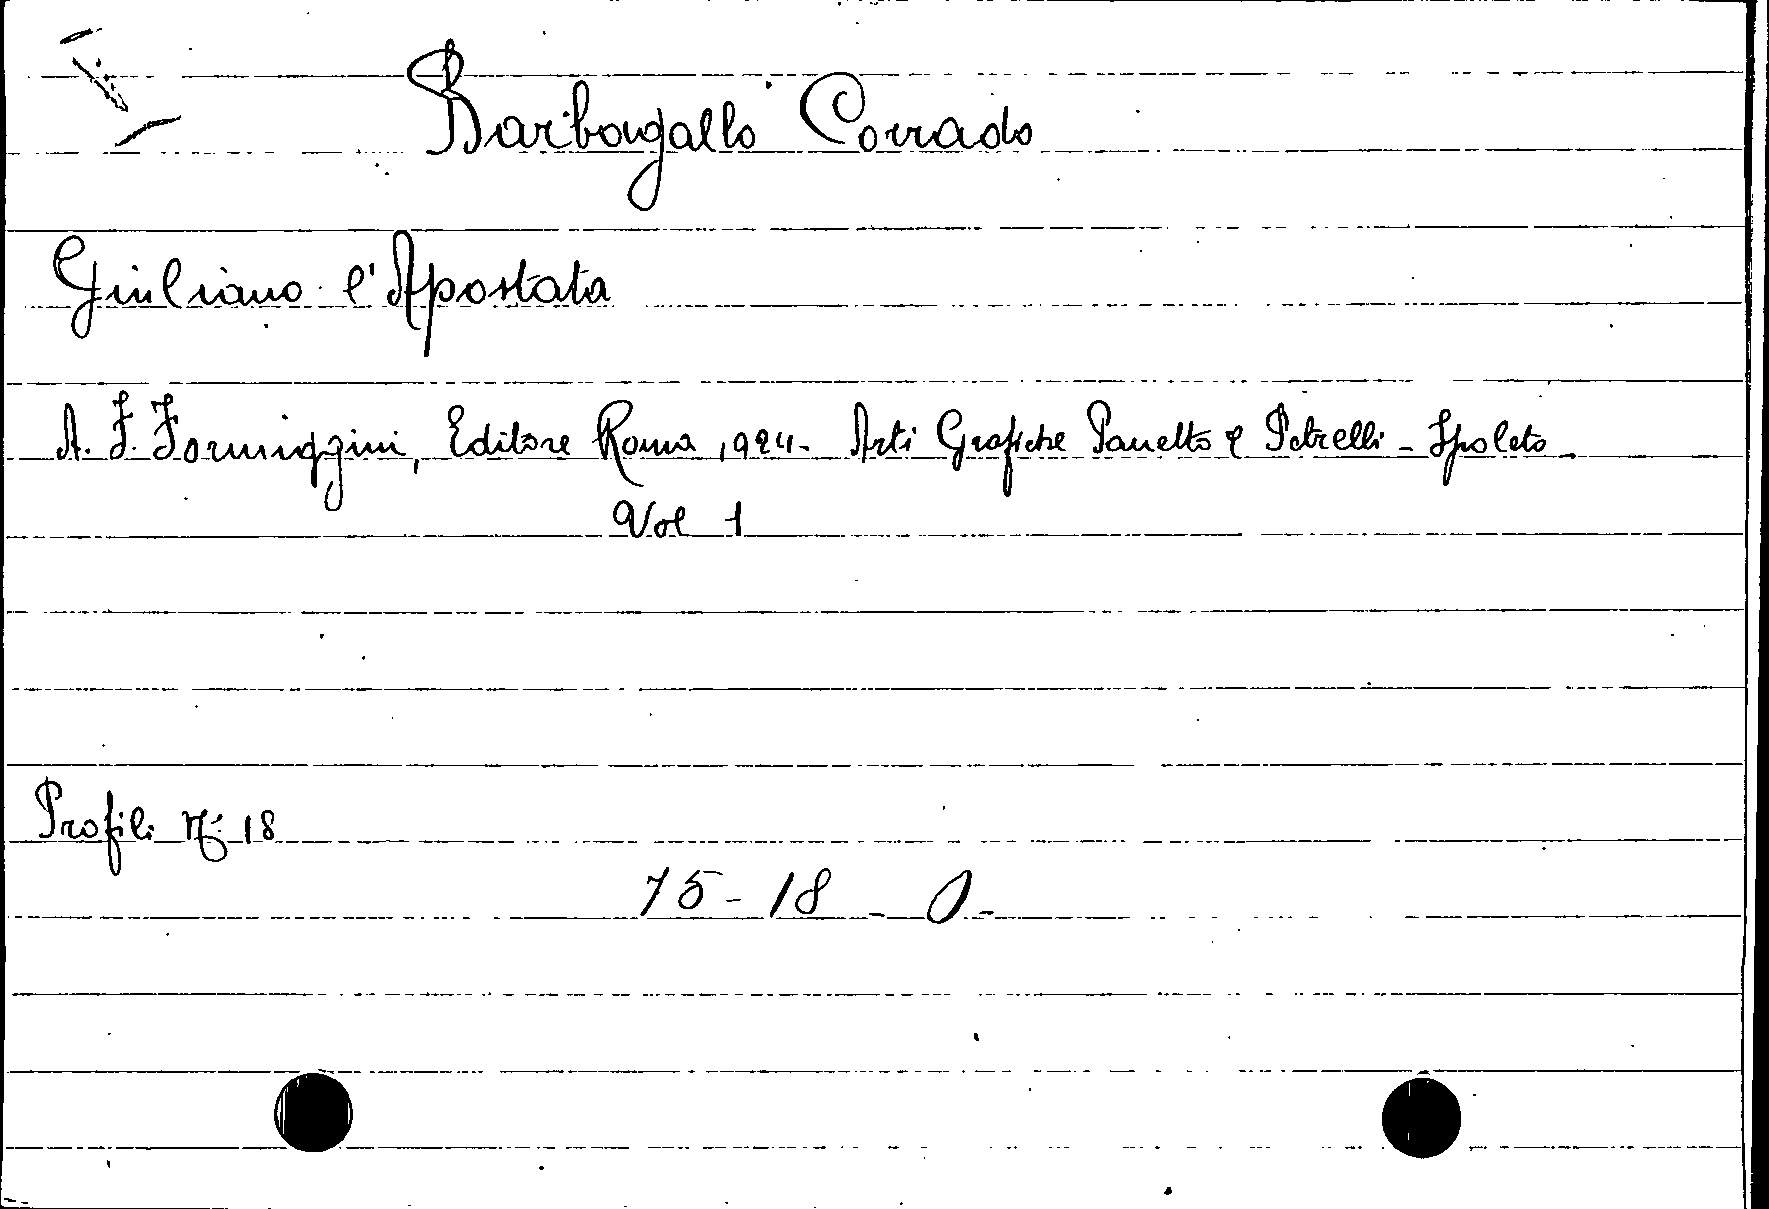 Barbagallo Corrado
Giuliano l'Apostata
A. F. Formiggini, Editore Roma 1924 - Arti Grafiche Panetto e Petrelli - Spoleto
Vol 1
Profili N. 18
75 - 18 - 0 -